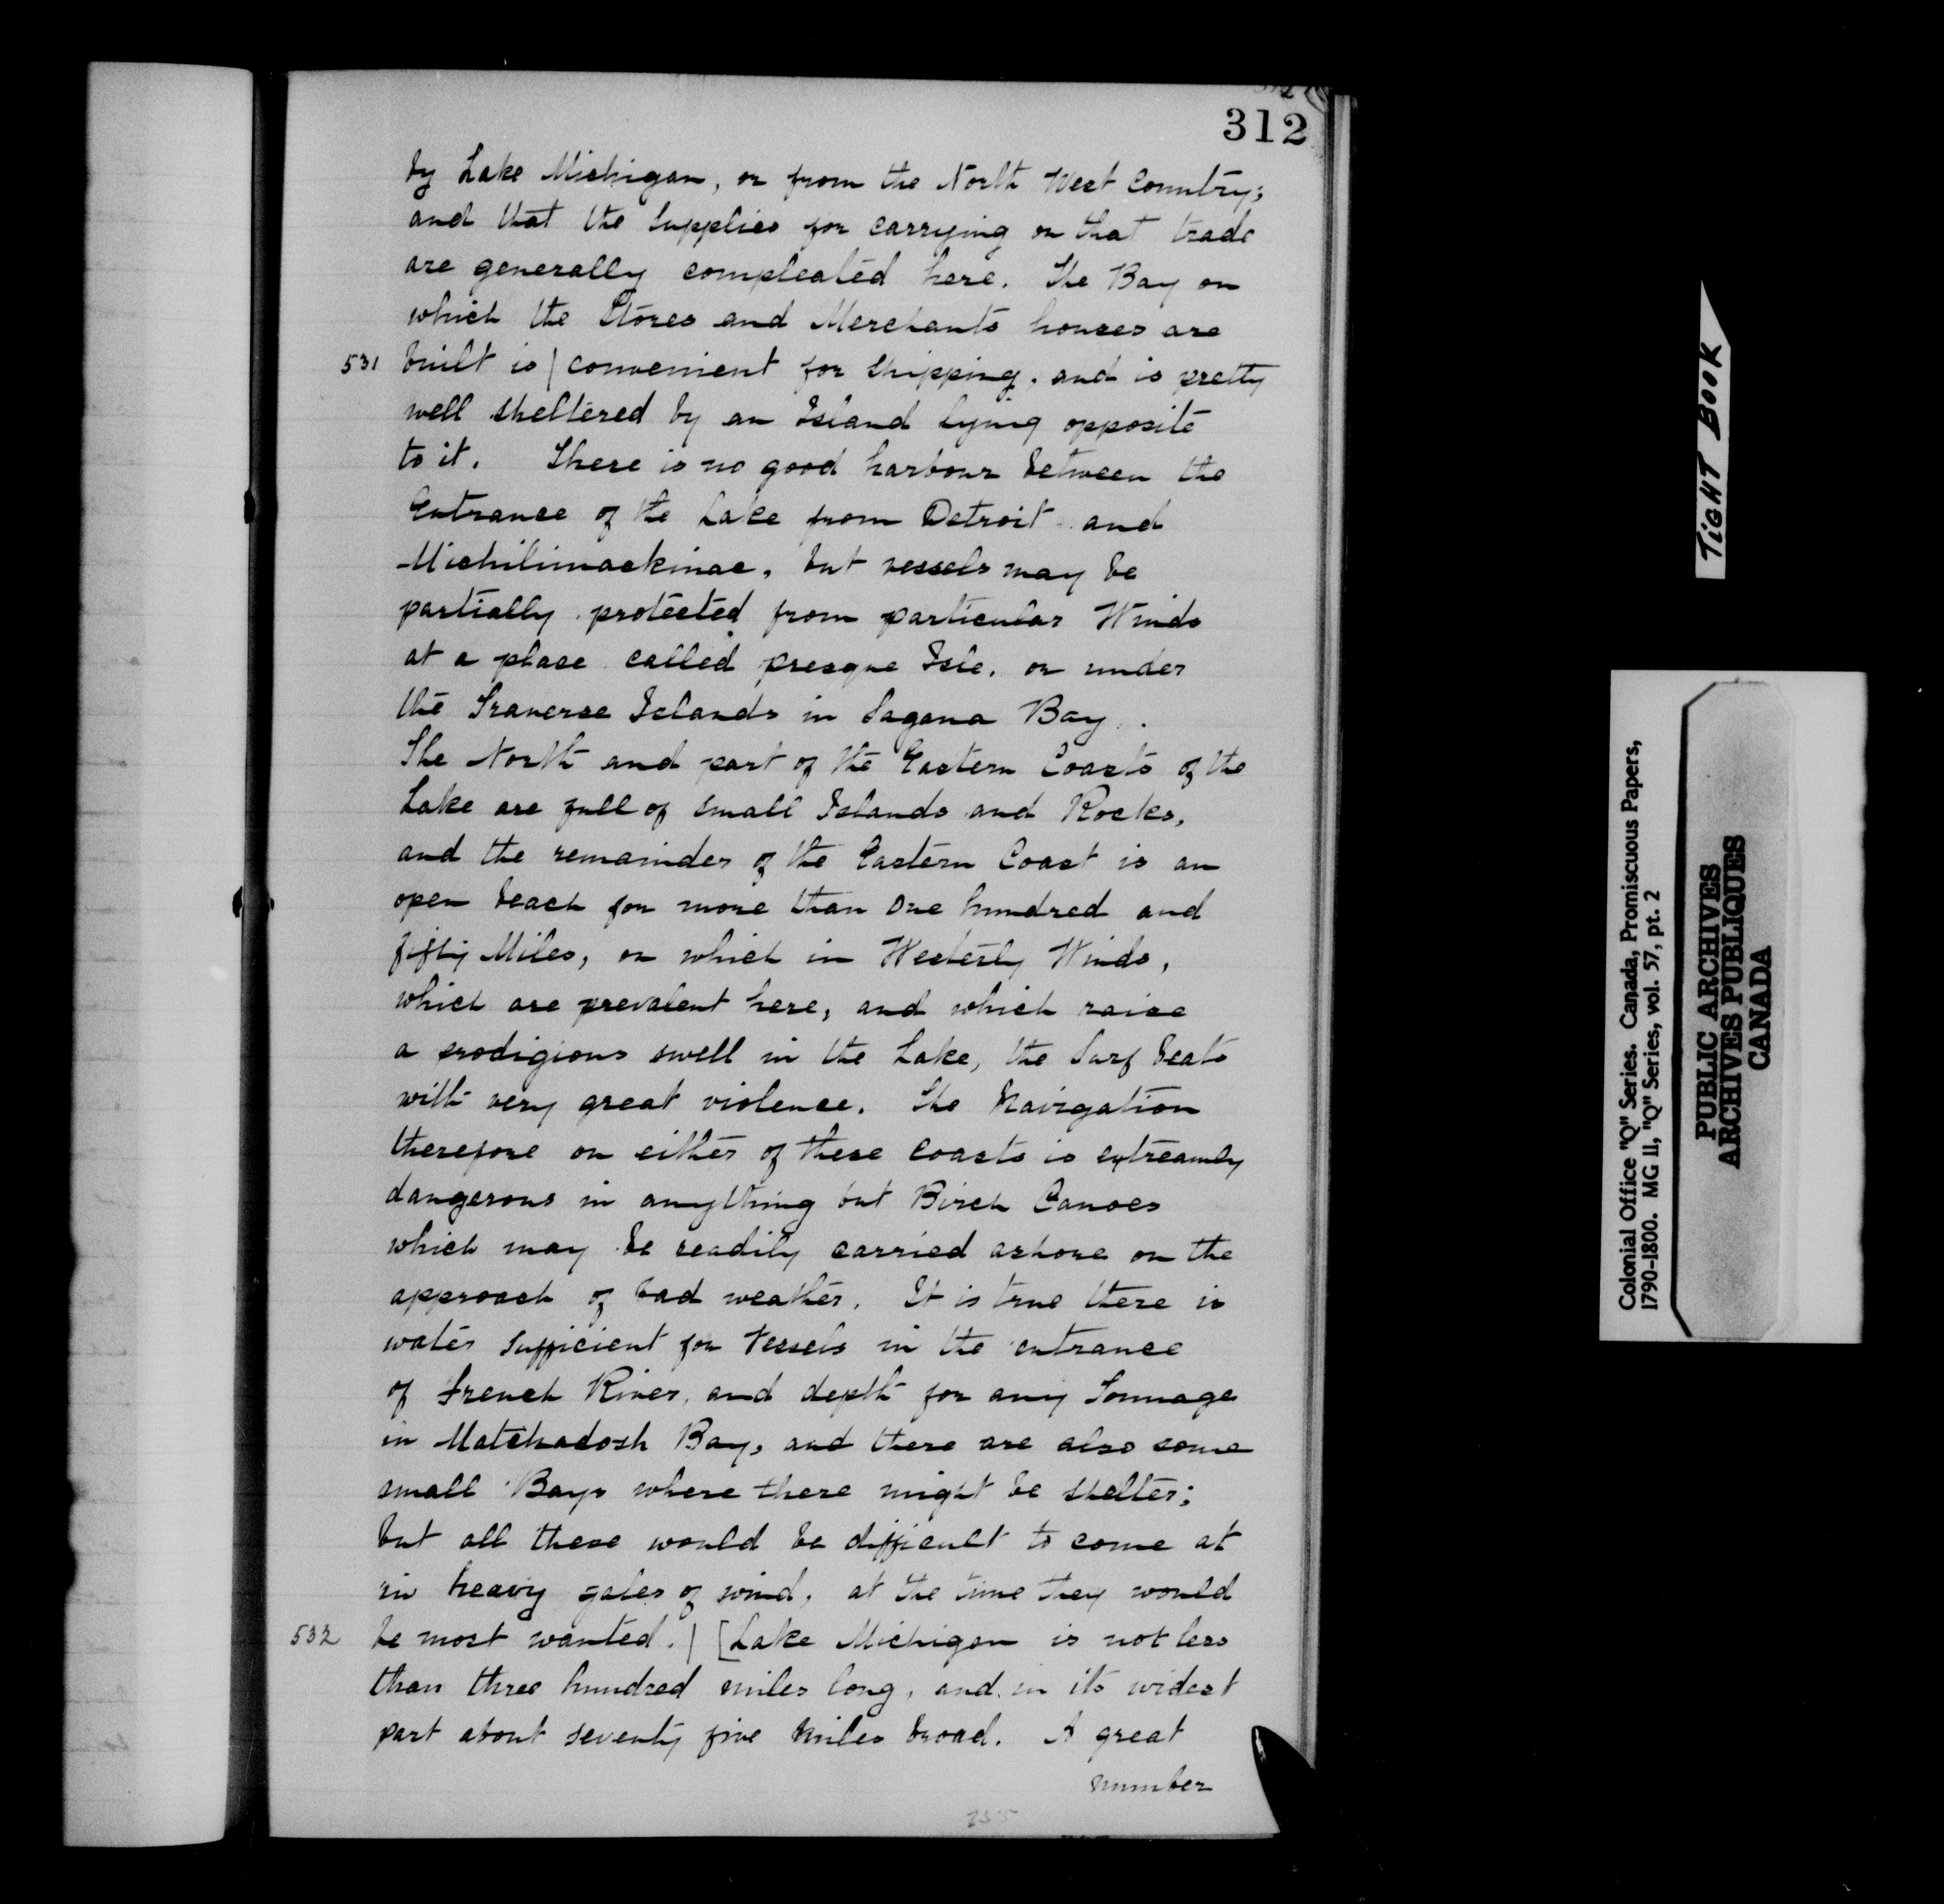 312
by Lake Michigan, or from the North West Country;
and that the supplies for carrying on that trade
are generally compleated here. The Bay on
which the Stores and Merchants houses are
531 built is | convenient for shipping, and is pretty
well sheltered by an Island lying opposite
to it. There is no good harbour between the
Entrance of the Lake from Detroit and
Michilimackinac, but vessels may be
partially protected from particular Winds
at a place called presque Isle, or under
the Traverse Islands in Sagana Bay.
The North and part of the Eastern Coasts of the
Lake are full of small Islands and Rocks,
and the remainder of the Eastern Coast is an
open beach for more than one hundred and
fifty Miles, on which in Westerly Winds,
which are prevalent here, and which raise
a prodigious swell in the Lake, the Surf beats
with very great violence. The Navigation
therefore on either of these coasts is extreamly
dangerous in anything but Birch Canoes
which may be readily carried ashore on the
approach of bad weather. It is true there is
water sufficient for Vessels in the entrance
of French River, and depth for any Tonnage
in Matchadosh Bay, and there are also some
small Bays where there might be shelter;
but all these would be difficult to come at
in heavy gales of wind, at the time they would
532 be most wanted. | [Lake Michigan is not less
than three hundred miles long, and in its widest
part about seventy five miles broad. A great
number
TIGHT BOOK
Colonial Office "Q" Series. Canada, Promiscuous Papers,
1790-1800. MG 11, "Q" Series, vol. 57, pt. 2
PUBLIC ARCHIVES
ARCHIVES PUBLIQUES
CANADA